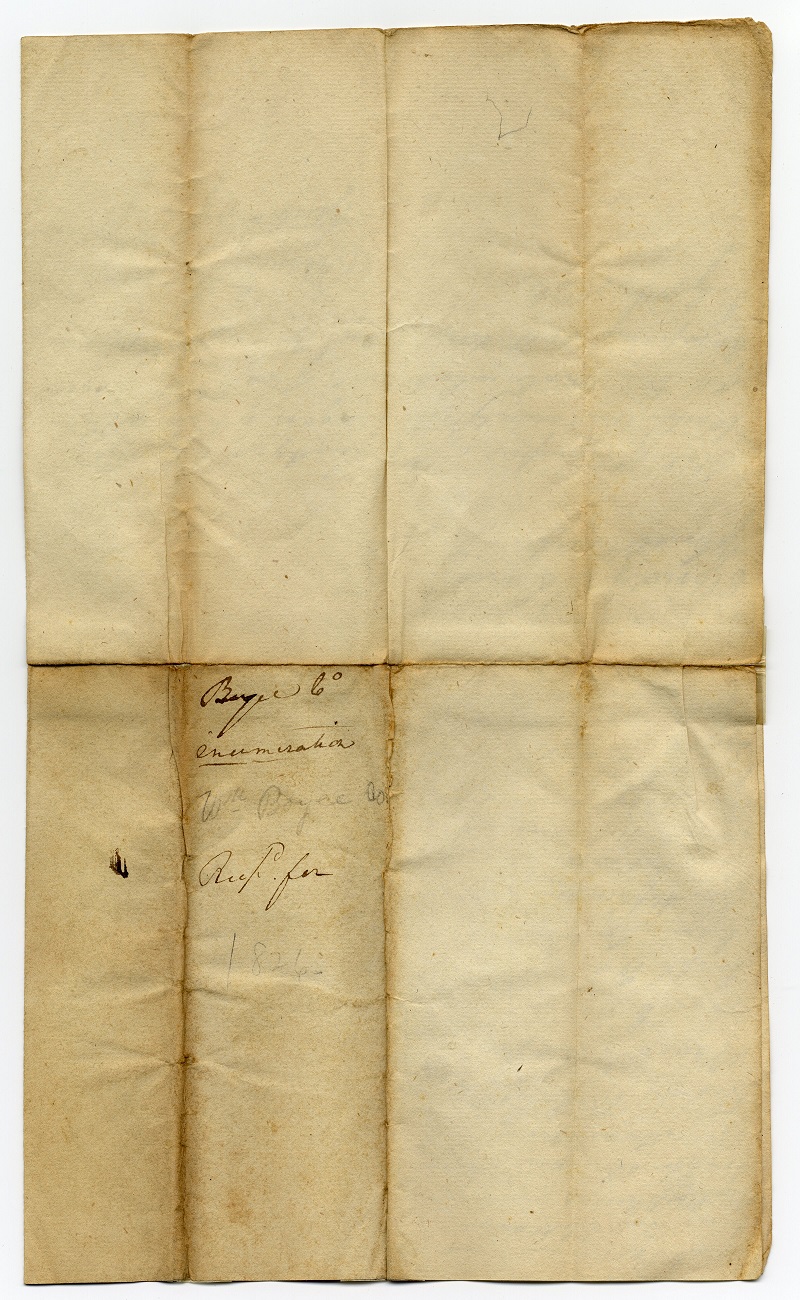 Boyce Co
enumeration
Wm Boyce Co
Recd. for
1826